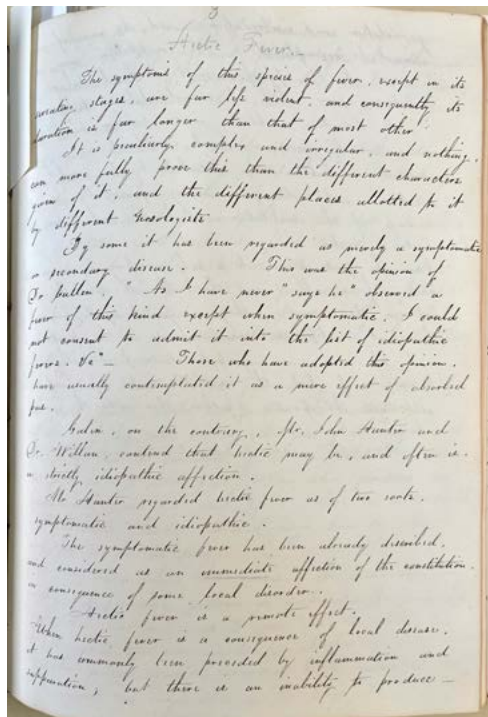 3
Hectic Fever.
The symptoms of this species of fever, except in its
stages, are far less violent, and consequently its
duration is far longer than that of most other
It is peculiarly complex and irregular, and nothing
can more fully prove this than the different characters
given of it, and the different places allotted to it
by different Nosologists
By some it has been regarded as merely a symptomatic
or secondary disease. This was the opinion of
Dr Cullen, "As I have never" says he "observed a
fever of this kind except when symptomatic, I could
not consent to admit it into the list of idiopathic
fevers. &c" — Those who have adopted this opinion,
have usually contemplated it as a mere effect of absorbed
pus.
Galen, on the contrary, Mr. John Hunter and
Dr. Willan, contend that hectic may be, and often is,
a strictly idiopathic affection.
Mr Hunter regarded hectic fever as of two sorts,
symptomatic and idiopathic.
The symptomatic fever has been already described,
and considered as an immediate affection of the constitution,
a consequence of some local disorder.
Hectic fever is a remote effect.
When hectic fever is a consequence of local disease,
it has commonly been preceded by inflammation and
suppuration, but there is an inability to produce —